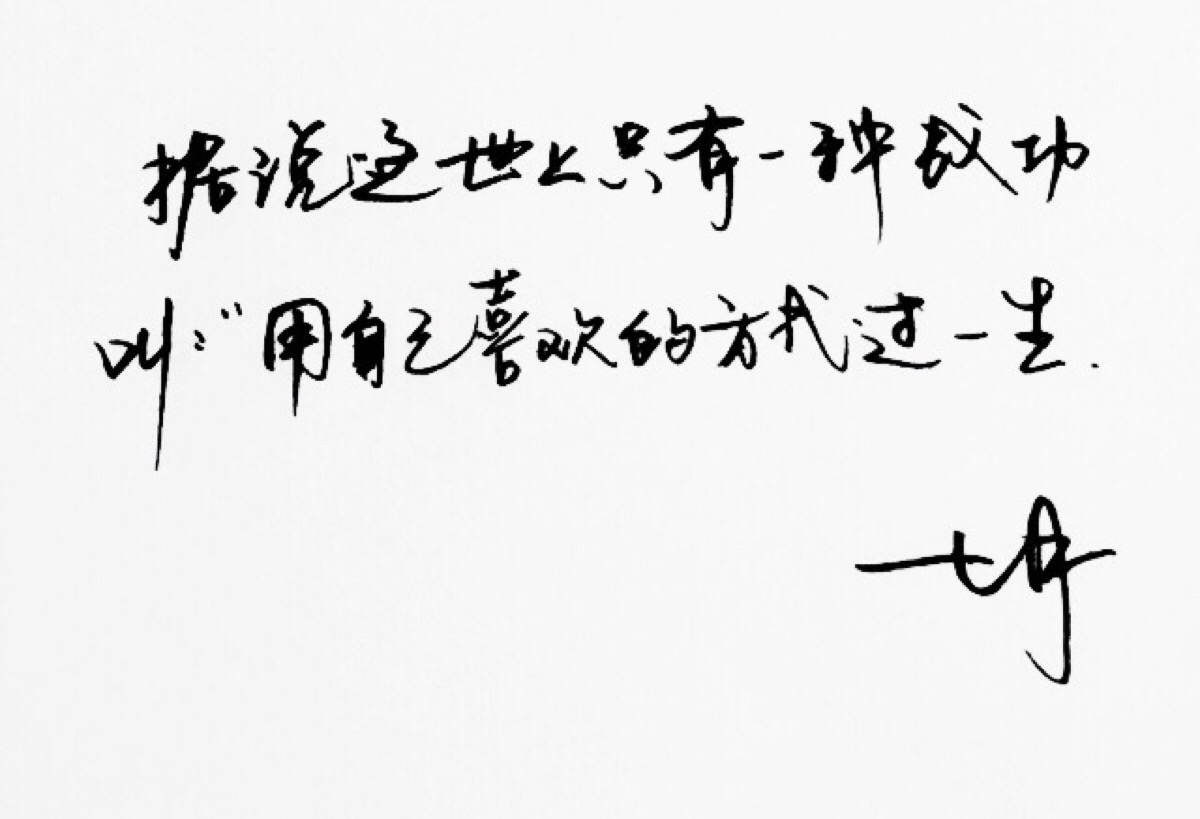 据说这世上只有一种成功
叫:“用自己喜欢的方式过一生.